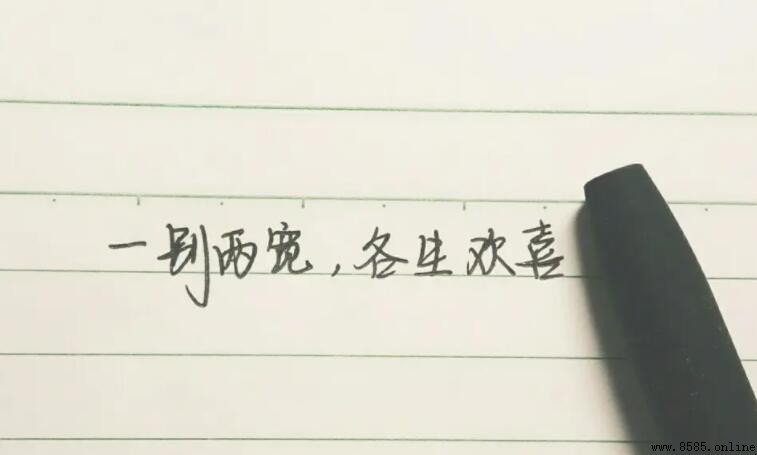 一别两宽，各生欢喜
www.8585.online